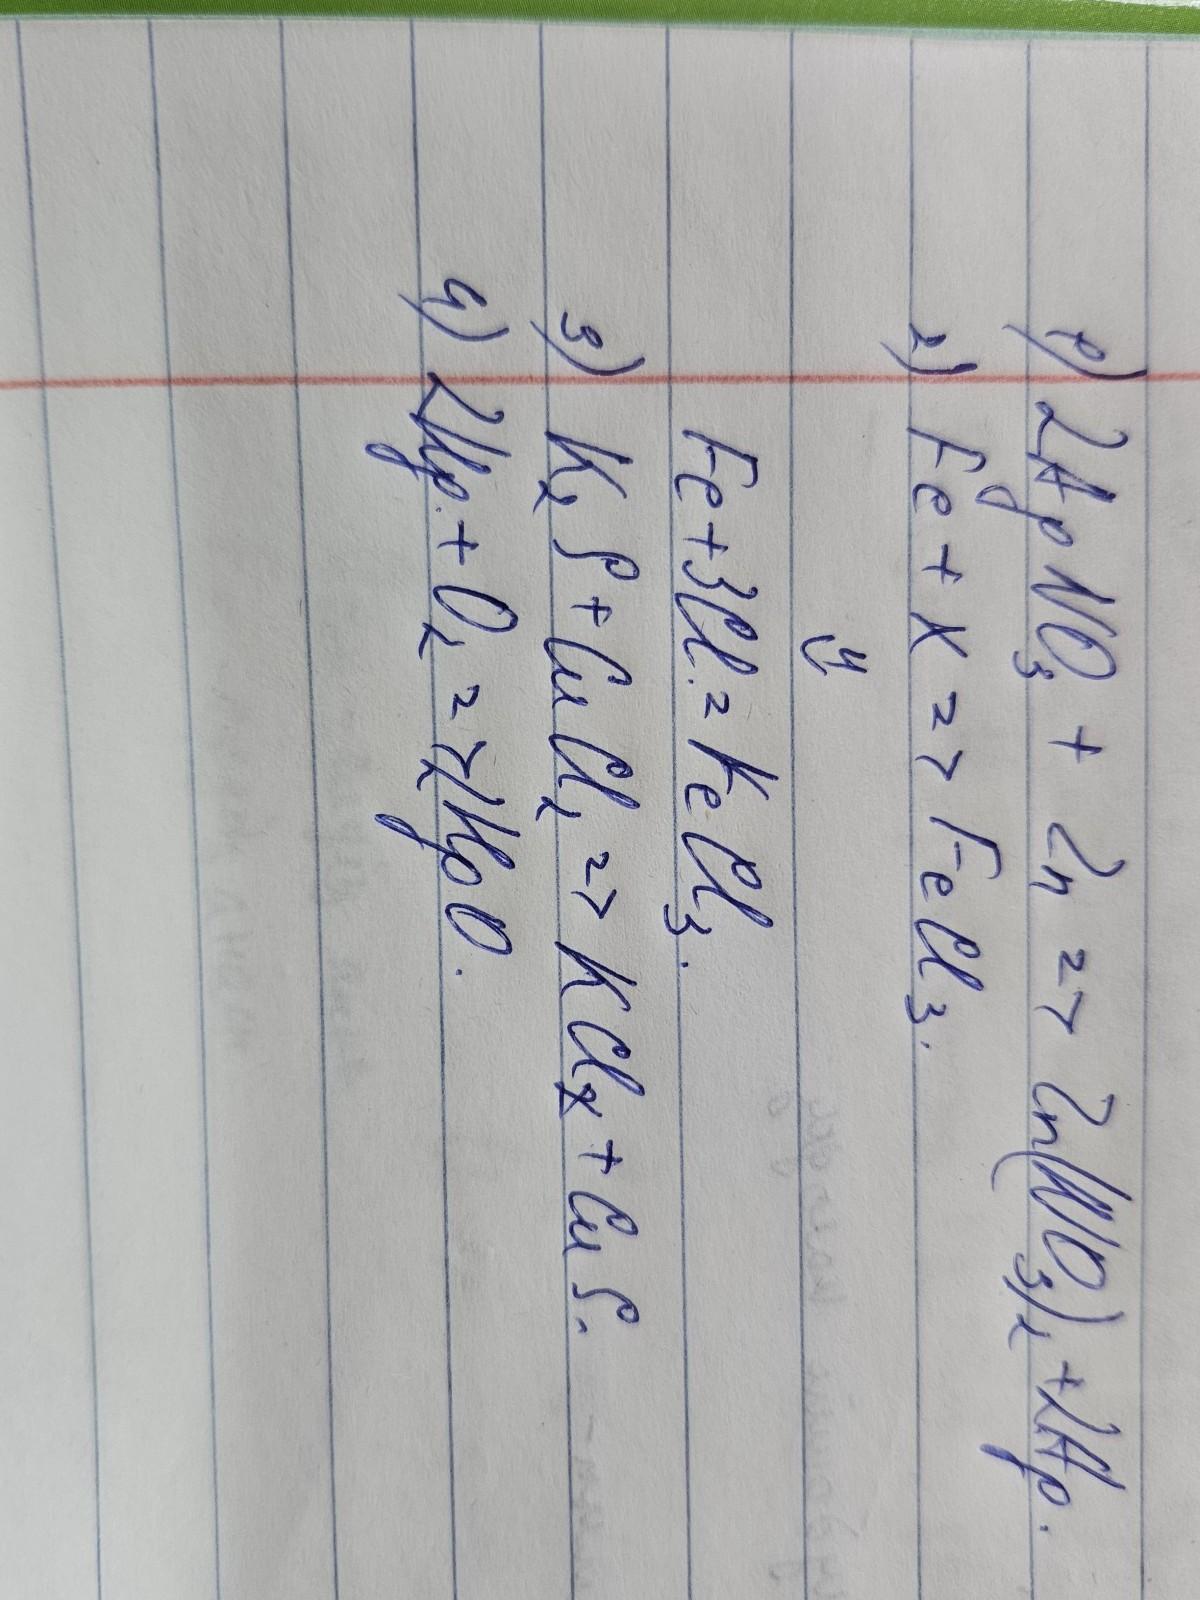 1) 2HgNO₃ + Zn => Zn(NO₃)₂ + 2Hg.
2) Fe + X => FeCl₃.
Fe + 3Cl. = FeCl₃.
3) K₂S + CuCl₂ => KCl₂ + CuS.
4) 2Hg. + O₂ => 2HgO.